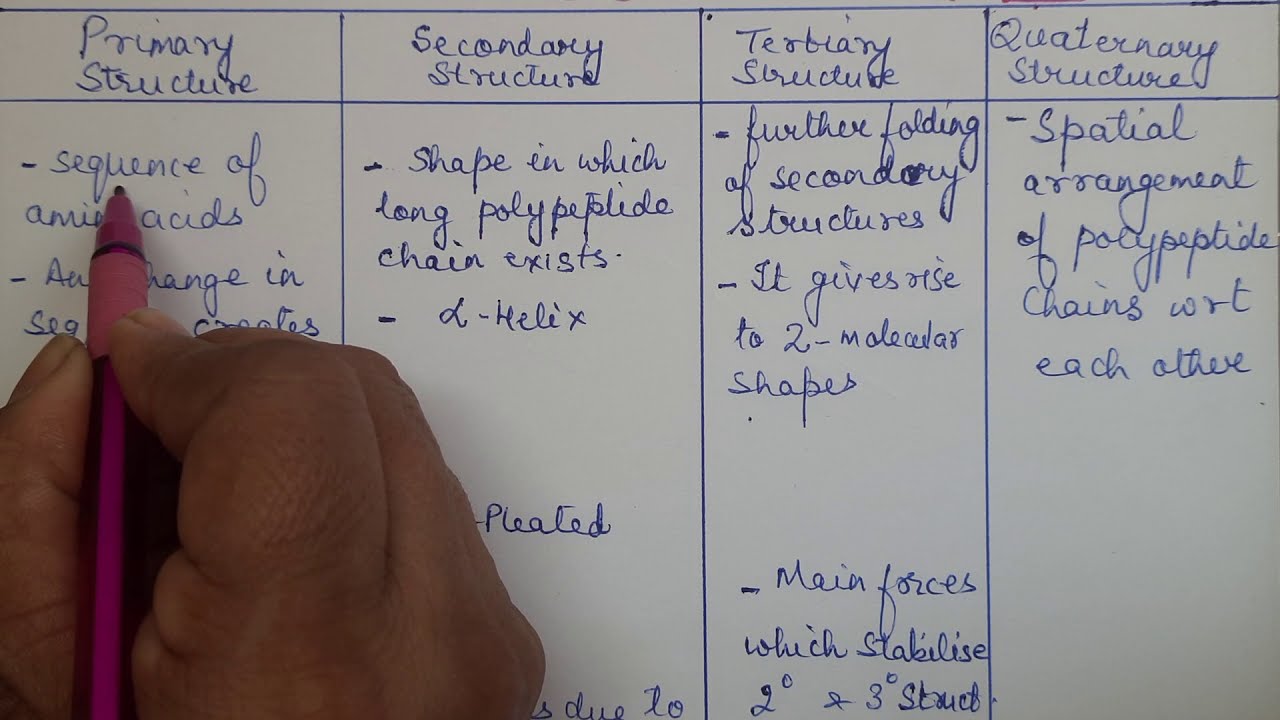 Primary
Structure
Secondary
Structure
Tertiary
Structure
Quaternary
Structure
- Sequence of
acids
- change in
creates
- Shape in which
long polypeptide
chain exists.
- α-Helix
-Pleated
due to
- further folding
of secondary
structures
- It gives rise
to 2-molecular
shapes
- Main forces
which stabilise
2° & 3° Struct.
- Spatial
arrangement
of polypeptide
Chains wrt
each other